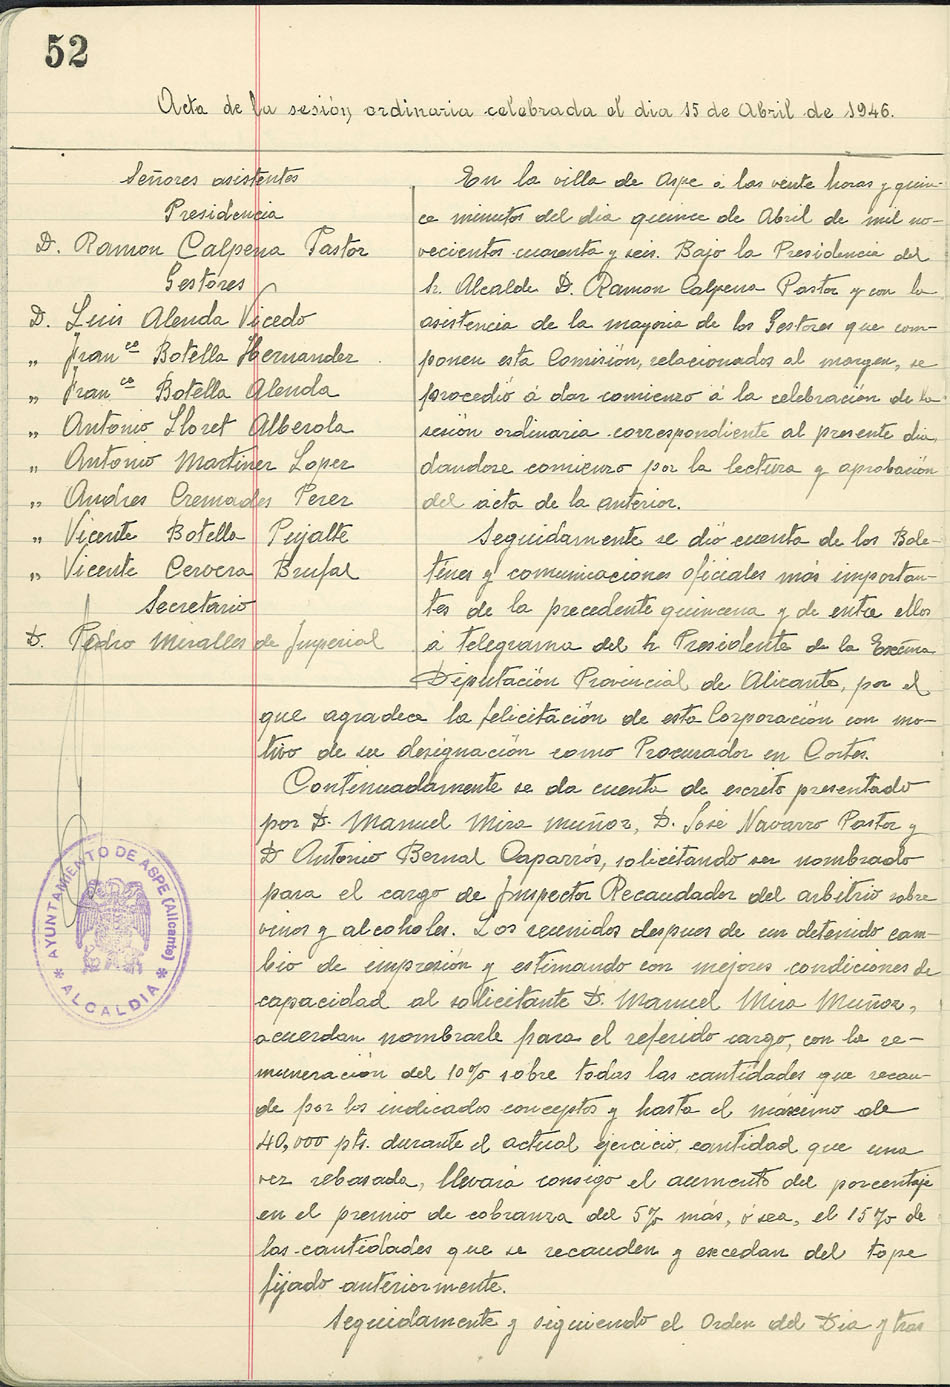 52
Acta de la sesión, ordinaria celebrada el dia 15 de Abril de 1946.
Señores asistentes
Presidencia
D. Ramon Calpena Pastor
Gestores
D. Luis Alenda Vicedo
„ Fran.co Botella Hernandez
„ Fran.co Botella Alenda
„ Antonio Lloret Alberola
„ Antonio Martinez Lopez
„ Andres Cremades Perez
„ Vicente Botella Pujalte
„ Vicente Cervera Brufal
Secretario
D. Pedro Miralles de Imperial
En la villa de Aspe á las vente horas y quin-
ce minutos del dia quince de Abril de mil no-
vecientos cuarenta y seis. Bajo la Presidencia del
Sr. Alcalde D. Ramon Calpena Pastor y con la
asistencia de la mayoria de los Gestores que com-
ponen esta Comisión, relacionados al margen, se
procedió á dar comienzo á la celebración de la
sesión ordinaria correspondiente al presente dia,
dandose comienzo por la lectura y aprobación
del acta de la anterior.
Seguidamente se dió cuenta de los Bole-
tines y comunicaciones oficiales más importan-
tes de la precedente quincena y de entre ellos
á telegrama del Sr Presidente de la Excma
Diputación Provincial de Alicante, por el
que agradece la felicitación de esta Corporación con mo-
tivo de su designación como Procurador en Cortes.
Continuadamente se da cuenta de escrito presentado
por D. Manuel Mira Muñoz, D. José Navarro Pastor y
D Antonio Bernal Caparrós, solicitando ser nombrado
para el cargo de Inspector Recaudador del arbitrio sobre
vinos y alcoholes. Los reunidos despues de un detenido cam-
bio de impresión y estimando con mejores condiciones de
capacidad al solicitante D. Manuel Mira Muñoz,
acuerdan nombrarle para el referido cargo, con la re-
muneración del 10% sobre todas las cantidades que recau-
de por los indicados conceptos y hasta el máximo de
40,000 pts. durante el actual ejercicio, cantidad que una
vez rebasada, llevará consigo el aumento del porcentaje
en el premio de cobranza del 5% más, ó sea, el 15% de
las cantidades que se recauden y excedan del tope
fijado anteriormente.
Seguidamente y siguiendo el Orden del Dia y tras
AYUNTAMIENTO DE ASPE (Alicante)
* ALCALDIA *